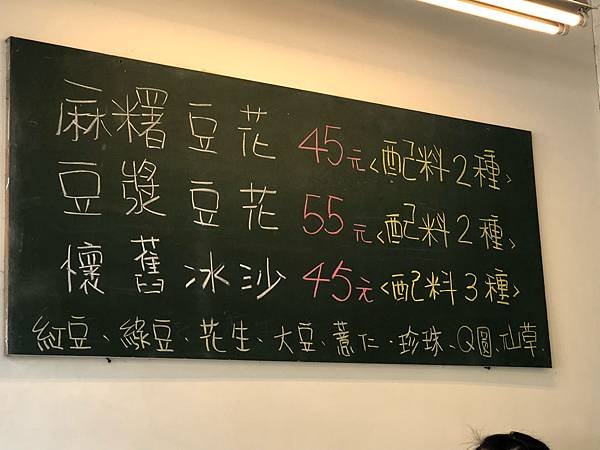 麻糬豆花 45元<配料2種>
豆漿豆花 55元<配料2種>
懷舊冰沙 45元<配料3種>
紅豆、綠豆、花生、大豆、薏仁、珍珠、Q圓、仙草.